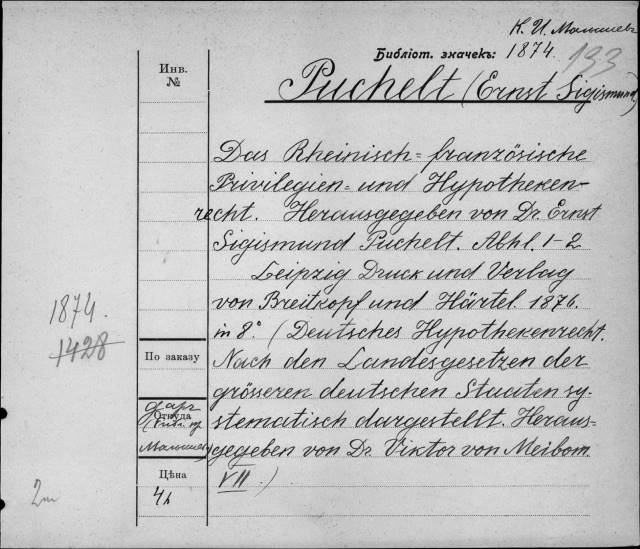 К. И. Малышевъ
Библіот. значекъ: 1874.
133
Инв.
№
Puchelt (Ernst Sigismund)
Das Rheinisch-französische
Privilegien- und Hypotheken-
recht. Herausgegeben von Dr. Ernst
Sigismund Puchelt. Abhl. 1-2
Leipzig Druck und Verlag
von Breitkopf und Härtel. 1876.
in 8°. (Deutsches Hypothekenrecht.
Nach den Landesgesetzen der
grösseren deutschen Staaten sy-
stematisch dargestellt. Heraus-
gegeben von Dr. Viktor von Meibom.
VII.)
1874.
1428
По заказу
Откуда
даръ
Малышев
Цѣна
2т